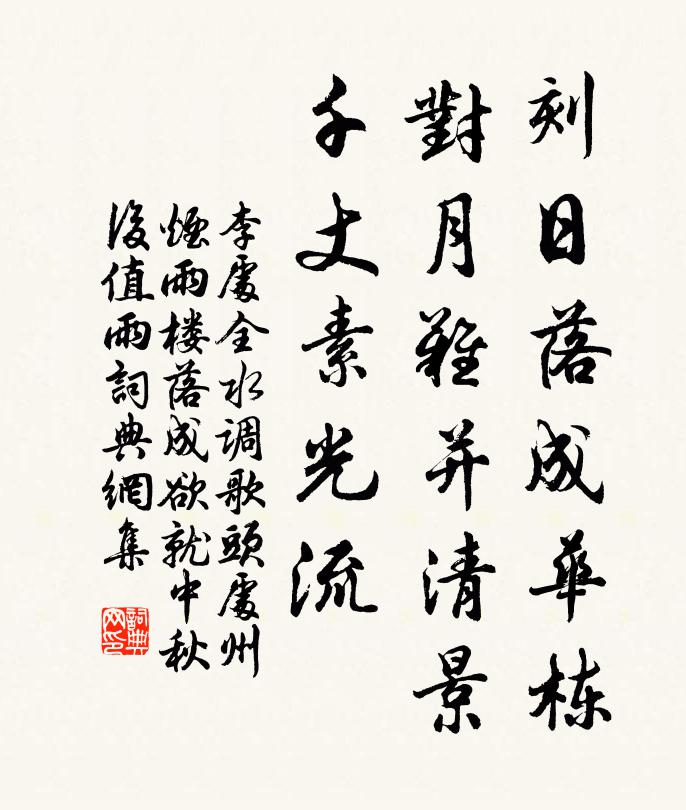 刻日落成華栋
對月難并清景
千丈素光流
李處全水调歌頭處州
煙雨楼落成欲就中秋
後值雨詞典網集
詞典
网印